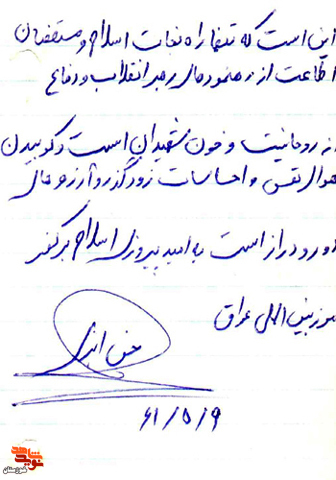 این است که تنها راه نجات اسلام و مستضعفان
اطاعت از رهنمودهای رهبر انقلاب و دفاع
از روحانیت و خون شهیدان است و کوبیدن
هوای نفس و احساسات زودگذر و آرزوهای
دور و دراز است به امید پیروزی اسلام بر کفر
مرز بین المللی عراق
۶۱/۵/۹
نوید شاهد
خوزستان